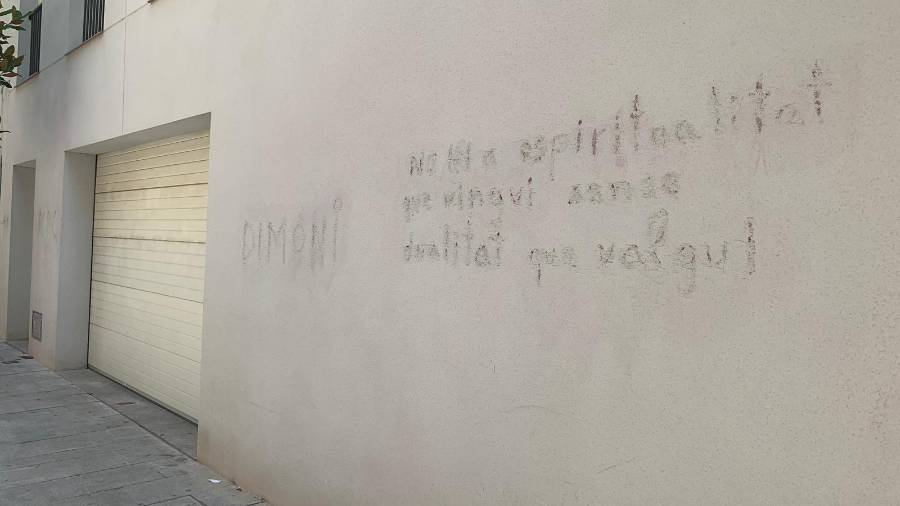 DIMONI
No HI a espiritualitat
que vingui sense
dualitat que valgui